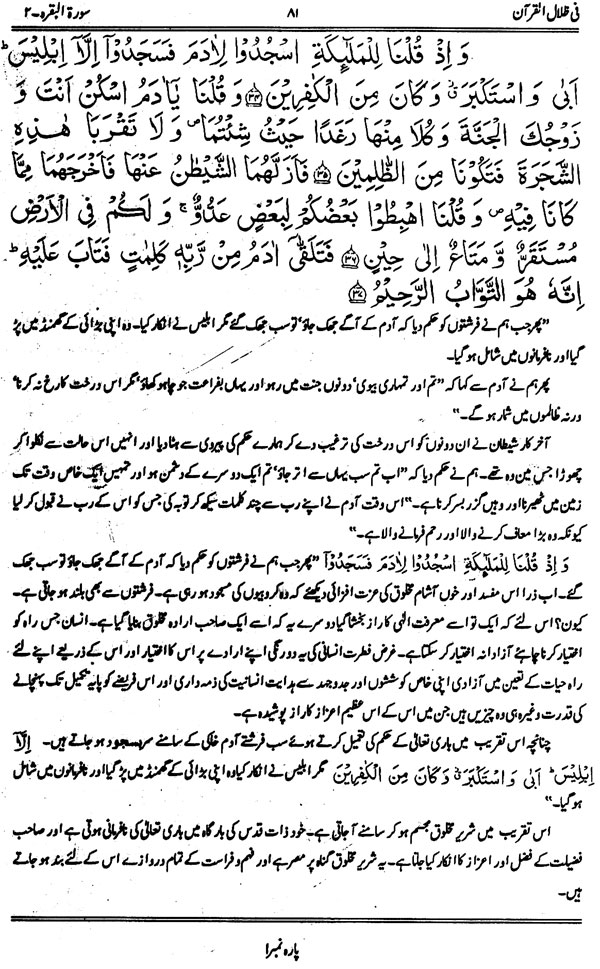 فی ظلال القرآن ۸۱ سورۃ البقرہ - ۲
وَ اِذْ قُلْنَا لِلْمَلٰٓىِٕكَةِ اسْجُدُوْا لِاٰدَمَ فَسَجَدُوْۤا اِلَّاۤ اِبْلِیْسَ ؕ
اَبٰى وَ اسْتَكْبَرَ ۗ وَ كَانَ مِنَ الْكٰفِرِیْنَ ﴿۳۴﴾ وَ قُلْنَا یٰۤاٰدَمُ اسْكُنْ اَنْتَ وَ
زَوْجُكَ الْجَنَّةَ وَ كُلَا مِنْهَا رَغَدًا حَیْثُ شِئْتُمَا ۪ وَ لَا تَقْرَبَا هٰذِهِ
الشَّجَرَةَ فَتَكُوْنَا مِنَ الظّٰلِمِیْنَ ﴿۳۵﴾ فَاَزَلَّهُمَا الشَّیْطٰنُ عَنْهَا فَاَخْرَجَهُمَا مِمَّا
كَانَا فِیْهِ ۪ وَ قُلْنَا اهْبِطُوْا بَعْضُكُمْ لِبَعْضٍ عَدُوٌّ ۚ وَ لَكُمْ فِی الْاَرْضِ
مُسْتَقَرٌّ وَّ مَتَاعٌ اِلٰى حِیْنٍ ﴿۳۶﴾ فَتَلَقّٰۤى اٰدَمُ مِنْ رَّبِّهٖ كَلِمٰتٍ فَتَابَ عَلَیْهِ ؕ
اِنَّهٗ هُوَ التَّوَّابُ الرَّحِیْمُ ﴿۳۷﴾
”پھر جب ہم نے فرشتوں کو حکم دیا کہ آدم کے آگے جھک جاؤ‘ تو سب جھک گئے مگر ابلیس نے انکار کیا۔ وہ اپنی بڑائی کے گھمنڈ میں پڑ
گیا اور نافرمانوں میں شامل ہو گیا۔
پھر ہم نے آدم سے کہا کہ ”تم اور تمہاری بیوی‘ دونوں جنت میں رہو اور یہاں بفراغت جو چاہو کھاؤ‘ مگر اس درخت کا رخ نہ کرنا‘
ورنہ ظالموں میں شمار ہو گے۔“
آخر کار شیطان نے ان دونوں کو اس درخت کی ترغیب دے کر ہمارے حکم کی پیروی سے ہٹا دیا اور انہیں اس حالت سے نکلوا کر
چھوڑا جس میں وہ تھے۔ ہم نے حکم دیا کہ ”اب تم سب یہاں سے اتر جاؤ‘ تم ایک دوسرے کے دشمن ہو اور تمہیں ایک خاص وقت تک
زمین میں ٹھیرنا اور وہیں گزر بسر کرنا ہے۔“ اس وقت آدم نے اپنے رب سے چند کلمات سیکھ کر توبہ کی جس کو اس کے رب نے قبول کر لیا
کیونکہ وہ بڑا معاف کرنے والا اور رحم فرمانے والا ہے۔“
وَ اِذْ قُلْنَا لِلْمَلٰٓىِٕكَةِ اسْجُدُوْا لِاٰدَمَ فَسَجَدُوْۤا ”پھر جب ہم نے فرشتوں کو حکم دیا کہ آدم کے آگے جھک جاؤ تو سب جھک
گئے۔ اب ذرا اس مفسد اور خوں آشام مخلوق کی عزت افزائی دیکھئے کہ وہ کروبیوں کی مسجود ہو رہی ہے۔ فرشتوں سے بھی بلند ہو جاتی ہے۔
کیوں؟ اس لئے کہ ایک تو اسے معرفت الٰہی کا راز بخشا گیا دوسرے یہ کہ اسے ایک صاحب ارادہ مخلوق بنایا گیا ہے۔ انسان جس راہ کو
اختیار کرنا چاہئے آزادانہ اختیار کر سکتا ہے۔ غرض فطرت انسانی کی یہ دو رنگی اپنے ارادے پر اس کا اختیار اور اس کے ذریعے اپنے لئے
راہ حیات کے تعین میں آزادی اپنی خاص کوششوں اور جدوجہد سے ہدایت انسانیت کی ذمہ داری اور اس فریضے کو پایہ تکمیل تک پہنچانے
کی قدرت وغیرہ ہی وہ چیزیں ہیں جن میں اس کے اس عظیم اعزاز کا راز پوشیدہ ہے۔
چنانچہ اس تقریب میں باری تعالیٰ کے حکم کی تعمیل کرتے ہوئے سب فرشتے آدم خاکی کے سامنے سربسجود ہو جاتے ہیں۔ اِلَّاۤ
اِبْلِیْسَ ؕ اَبٰى وَ اسْتَكْبَرَ ۗ وَ كَانَ مِنَ الْكٰفِرِیْنَ مگر ابلیس نے انکار کیا وہ اپنی بڑائی کے گھمنڈ میں پڑ گیا اور نافرمانوں میں شامل
ہو گیا۔“
اس تقریب میں شریر مخلوق مجسم ہو کر سامنے آ جاتی ہے۔ خود ذات قدس کی بارگاہ میں باری تعالیٰ کی نافرمانی ہوتی ہے اور صاحب
فضیلت کے فضل اور اعزاز کا انکار کیا جاتا ہے۔ یہ شریر مخلوق گناہ پر مصر ہے اور فہم و فراست کے تمام دروازے اس کے لئے بند ہو جاتے
ہیں۔
پارہ نمبر ۱